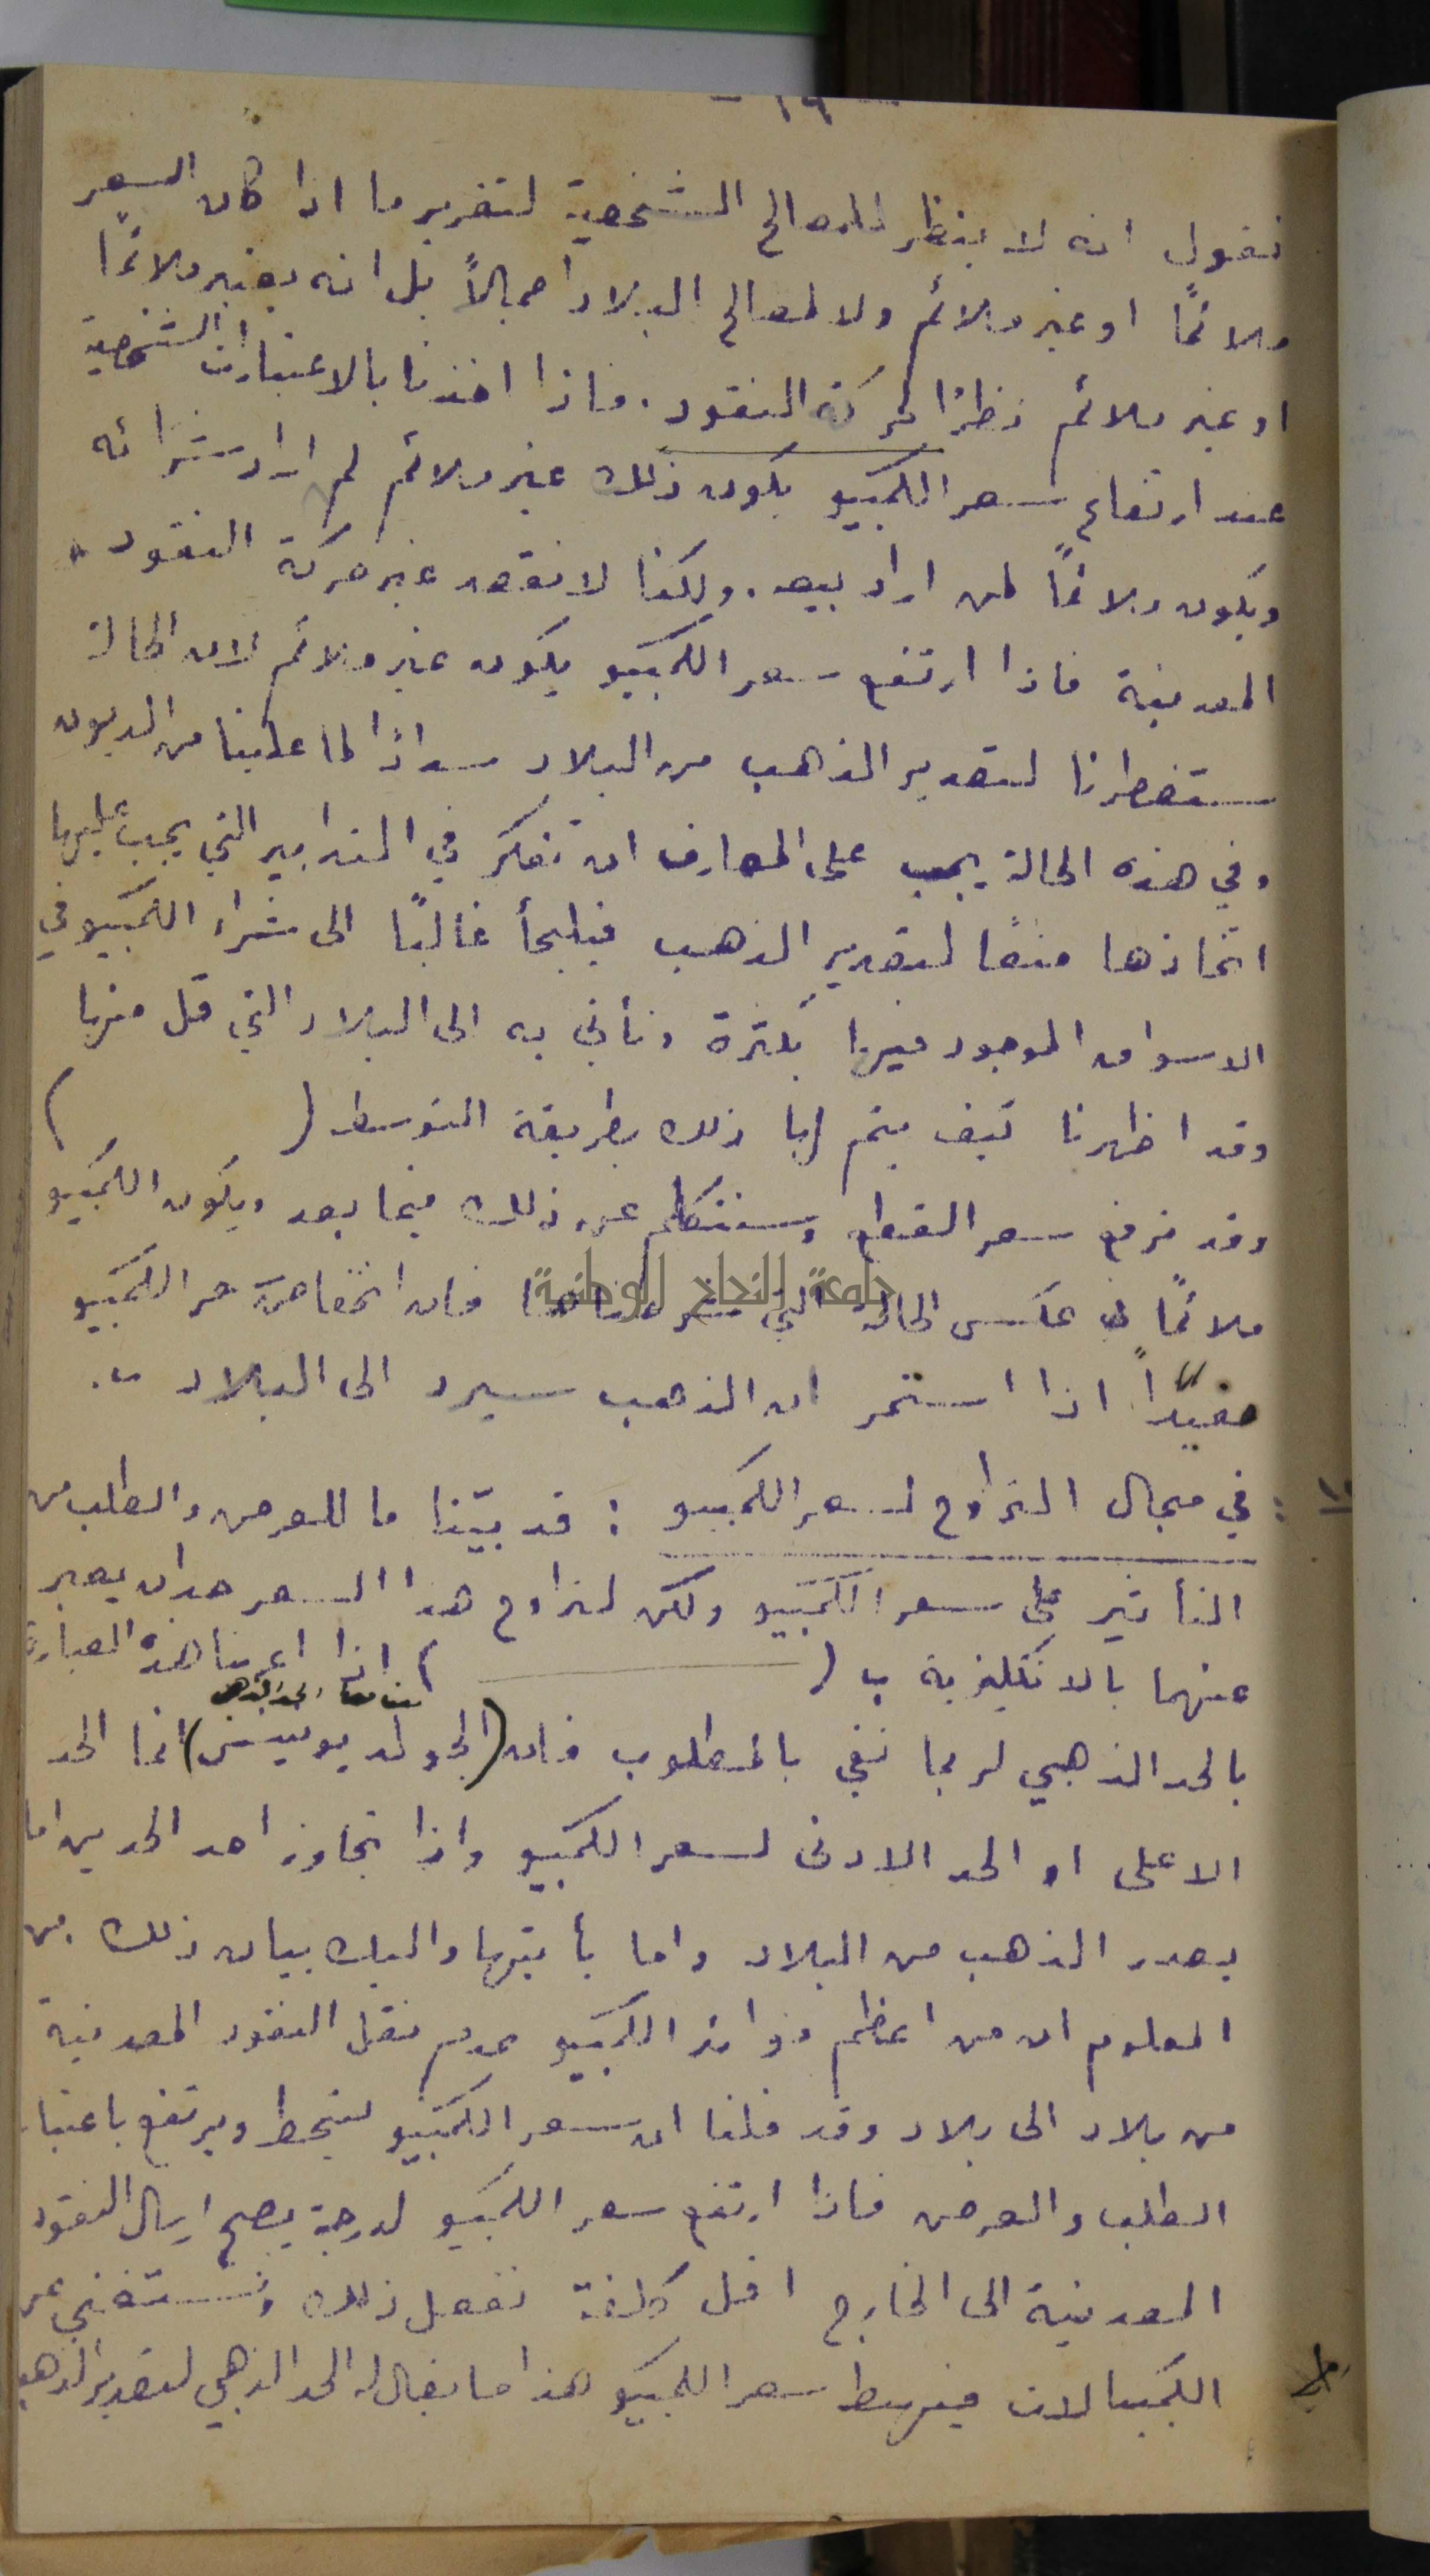 - ١٩ -
نقول انه لا ينظر للمصالح الشخصية لتقرير ما اذا كان السعر
ملائمًا او غير ملائم ولا لمصالح البلاد اجمالاً بل انه يعتبر ملائمًا
او غير ملائم نظرًا لحركة النقود. فاذا اخذنا بالاعتبارات الشخصية
عند ارتفاع سعر الكمبيو يكون ذلك غير ملائم لمن اراد شرائه
ويكون ملائمًا لمن اراد بيعه. ولكننا لا نقصد غير حركة النقود
المعدنية فاذا ارتفع سعر الكمبيو يكون غير ملائم لان الحالة
ستضطرنا لتصدير الذهب من البلاد سدادًا لما علينا من الديون
وفي هذه الحالة يجب على المصارف ان تفكر في التدابير التي يجب عليها
اتخاذها منعًا لتصدير الذهب فيلجأ غالبًا الى شراء الكمبيو في
الاسواق الموجود فيها بكثرة ونأتي به الى البلاد التي قل منها
وقد اظهرنا كيف يتم لها ذلك بطريقة التوسط ( )
وقد نرفع سعر القطع وسنتكلم عن ذلك فيما بعد ويكون الكمبيو
ملائمًا في عكس الحالة التي فان انخفاض سعر الكمبيو
مفيدًا اذا استمر ان الذهب سيرد الى البلاد .
جامعة النجاح الوطنية
: في مجال التراوح لسعر الكمبيو : قد بيّنا ما للعرض والطلب من
التأثير على سعر الكمبيو ولكن لتراوح هذا السعر حدان يعبر
عنهما بالانكليزية ب ( ) اذا اعربنا هذه العبارة
بالحد الذهبي لربما نفي بالمطلوب فان (الجولد بوينتس) انما الحد
الاعلى او الحد الادنى لسعر الكمبيو واذا تجاوز احد الحدين اما
يصدر الذهب من البلاد واما يأتيها واليك بيان ذلك من
المعلوم ان من اعظم فوائد الكمبيو عدم نقل النقود المعدنية
من بلاد الى بلاد وقد قلنا ان سعر الكمبيو ينحط ويرتفع باعتبار
الطلب والعرض فاذا ارتفع سعر الكمبيو لدرجة يصبح ارسال النقود
المعدنية الى الخارج اقل كلفة نفعل ذلك ونستغني عن
الكمبيالات فيهبط سعر الكمبيو هذا ما يقال له الحد الذهبي لتصدير الذهب